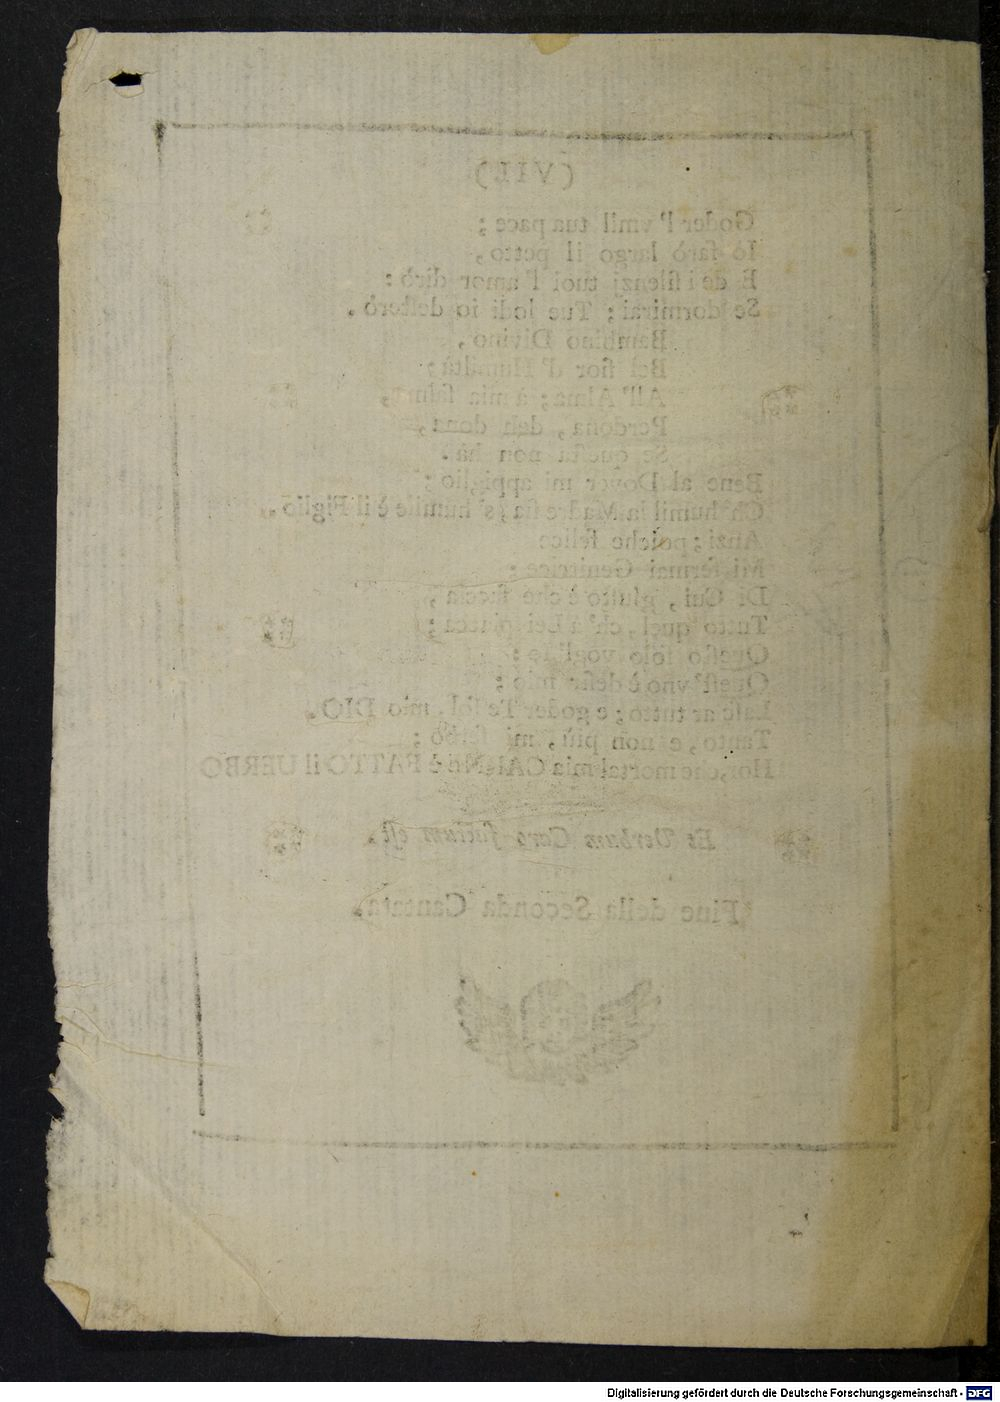 (VII.)
Goder l' vmil tua pace;
Iò farò largo il petto,
E de i ſilenzj tuoi l' amor dirò:
Se dormirai; Tue lodi io deſterò.
Bambino Divino,
Bel fior d' Humiltà;
All' Alma; à mia
Perdona, deh dona,
Se queſta non hà.
Bene al Dover mi appiglio;
Ch' humil la Madre ſia, s' humile è il Figlio.
Anzi; poiche felice
Mi fermai Genitrice:
Di Cui, giuſto è che faccia,
Tutto quel, ch' à Lei piacea;
Queſto ſolo vogl' io:
Queſt' vno è deſir mio;
Laſciar tutto; e goder Te ſol, mio DIO.
Tanto, e non più, mi ſerbo;
Hor, che mortal mia CARNE è FATTO il UERBO
Et Verbum Caro factum eſt.
Fine della Seconda Cantata.
Digitalisierung gefördert durch die Deutsche Forschungsgemeinschaft - DFG